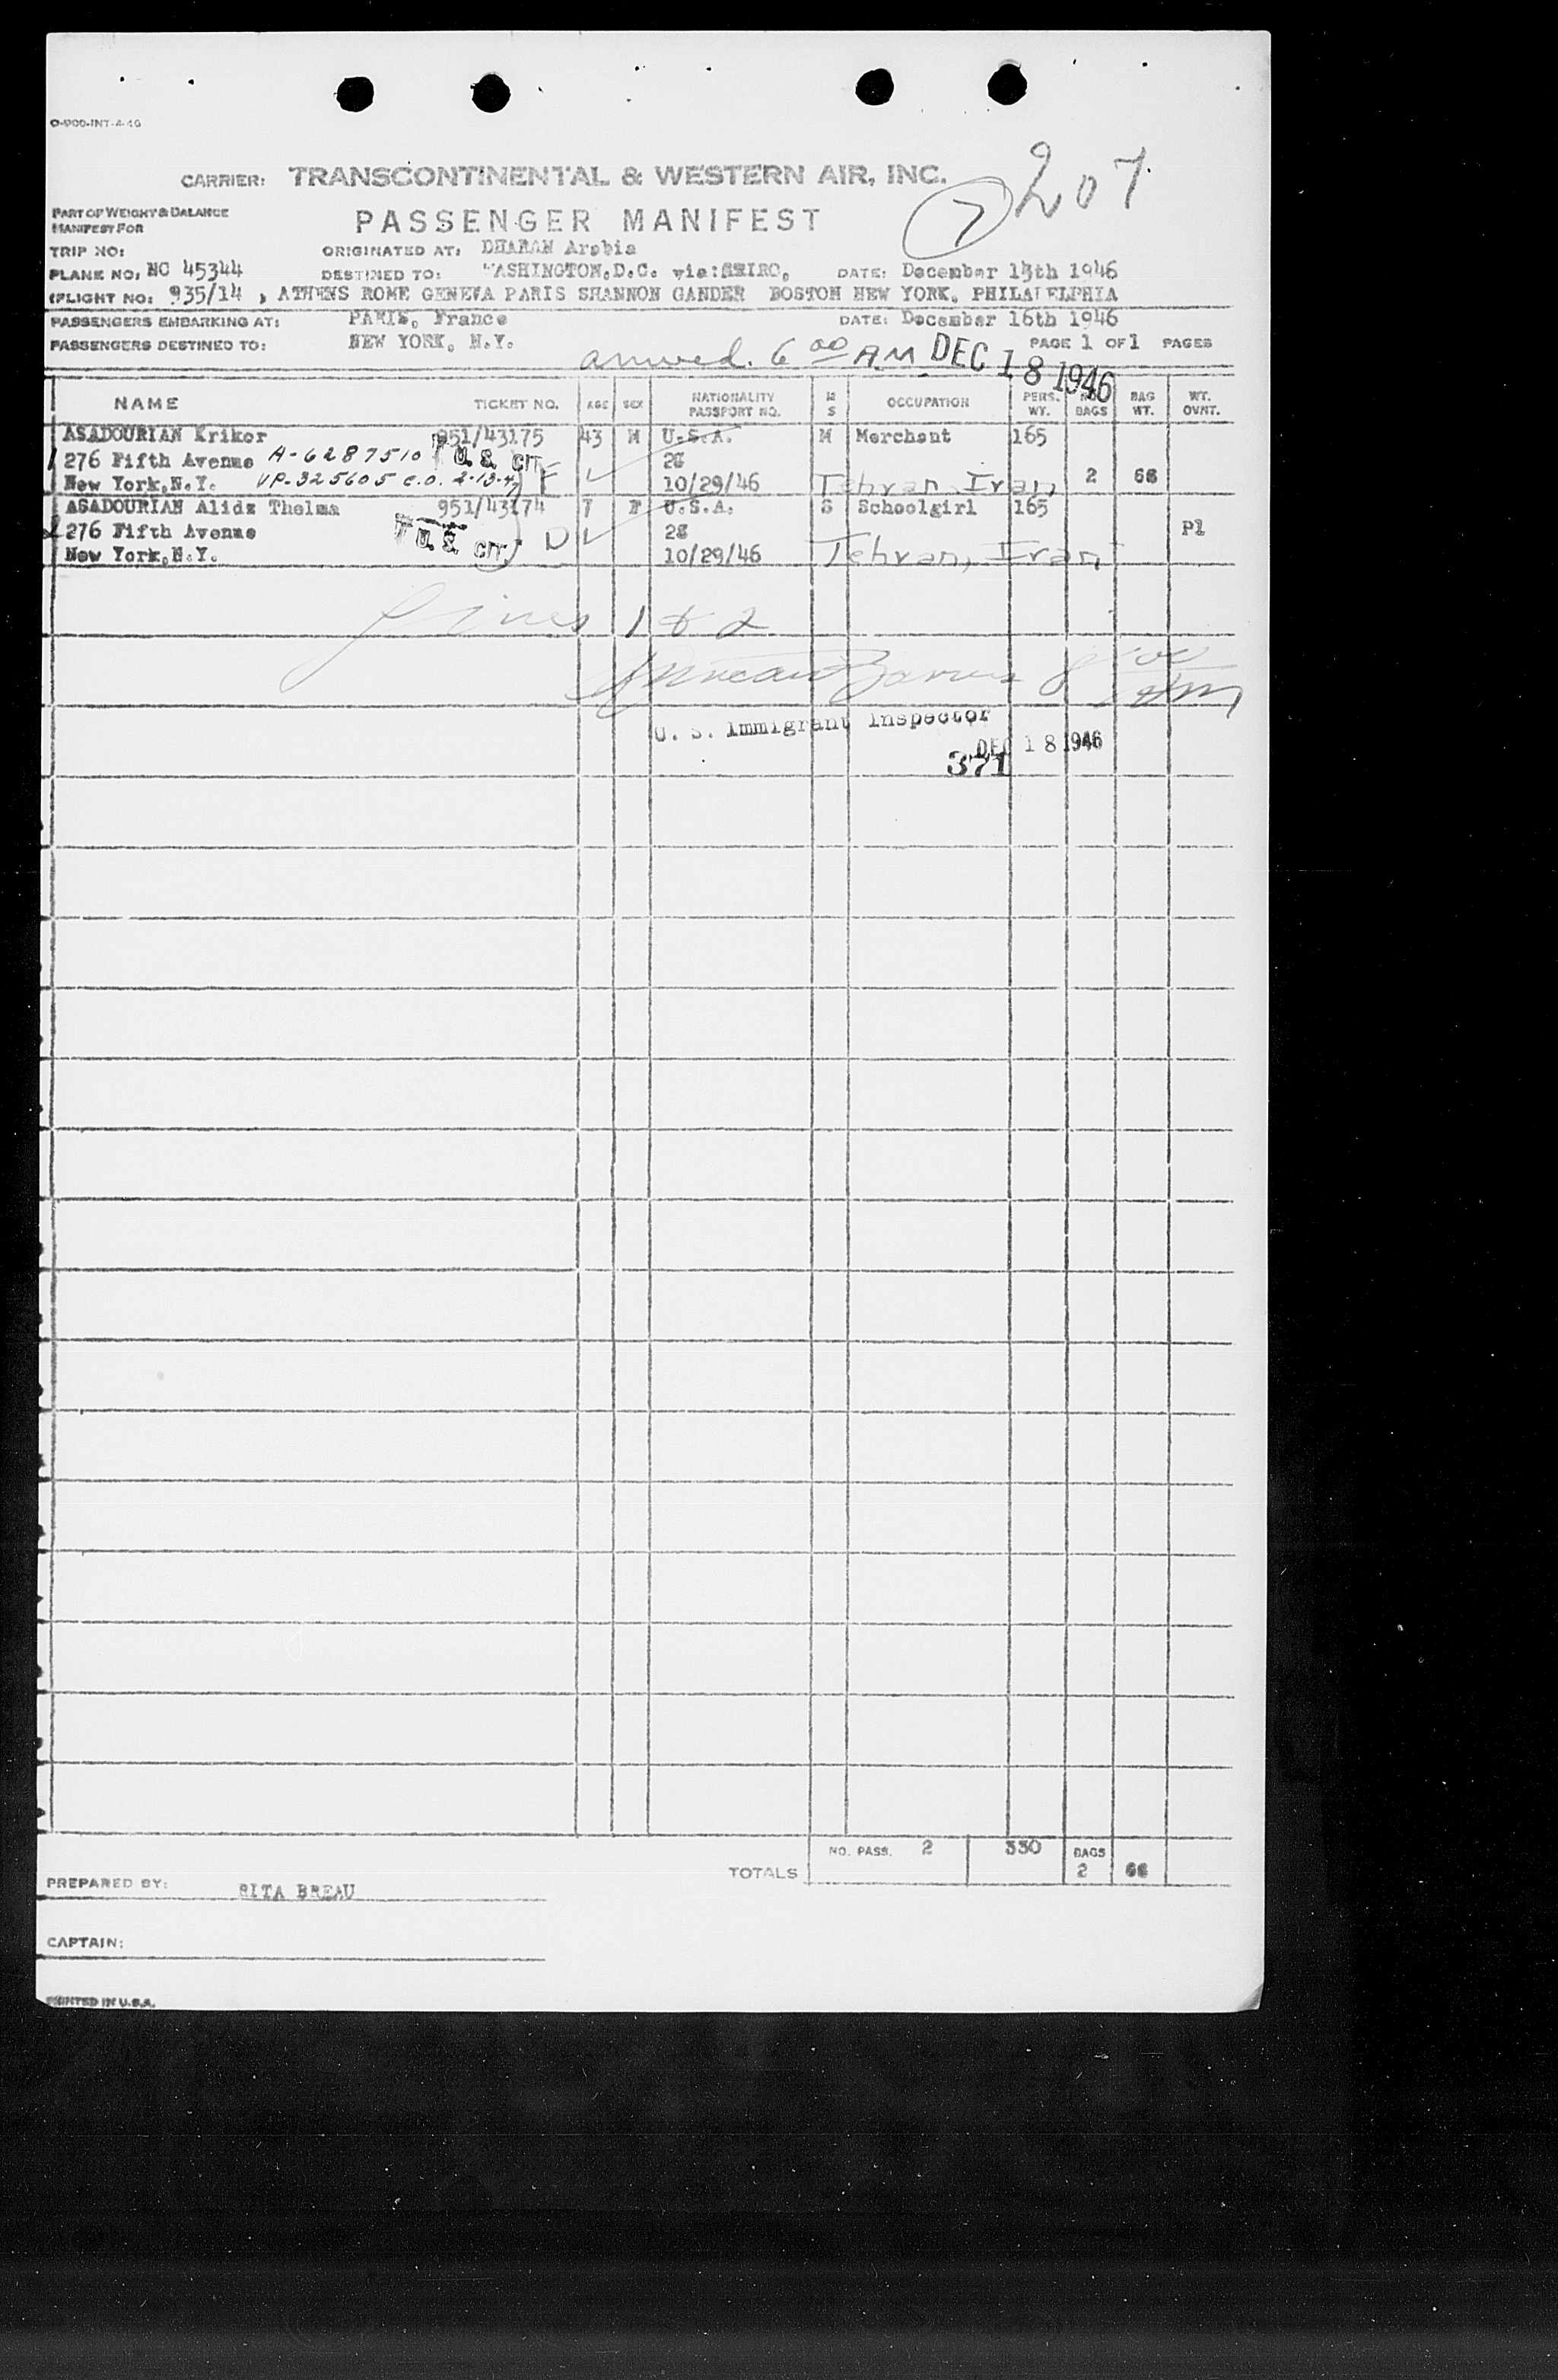 O-900-INT-4-46
CARRIER: TRANSCONTINENTAL & WESTERN AIR, INC. 207
PART OF WEIGHT & BALANCE
MANIFEST FOR
PASSENGER MANIFEST 7
TRIP NO: ORIGINATED AT: DHARAN Arabia
PLANE NO: NC 45344 DESTINED TO: WASHINGTON.D.C. via: DATE: December 15th 1946
(FLIGHT NO: 935/14 , ATHENS ROME GENEVA PARIS SHANNON GANDER BOSTON NEW YORK, PHILADELPHIA
PASSENGERS EMBARKING AT: PARIS, France DATE: December 16th 1946
PASSENGERS DESTINED TO: NEW YORK, N.Y. PAGE 1 OF 1 PAGES
arrived. 6 00 A.M DEC 18 1946
NAME TICKET NO. AGE SEX NATIONALITY PASSPORT NO. M S OCCUPATION PERS. WT. NO. BAGS BAG WT. WT. OVNT.
ASADOURIAN Krikor 951/43175 43 M U.S.A. M Merchant 165
1 276 Fifth Avenue A-6287510 U.S. CIT 28
New York,N.Y. VP-325605 C.O. 2-13-47 E 10/29/46 Tehran Iran 2 66
ASADOURIAN Alidz Thelma 951/43174 7 F U.S.A. S Schoolgirl 165
2 276 Fifth Avenue U.S. CIT D 28 P1
New York,N.Y. 10/29/46 Tehran, Iran
Lines 1 & 2
8 00 AM
U. S. Immigrant Inspector
DEC 18 1946
371
NO. PASS. 2 330 BAGS
TOTALS 2 66
PREPARED BY: RITA BREAU
CAPTAIN:
PRINTED IN U.S.A.